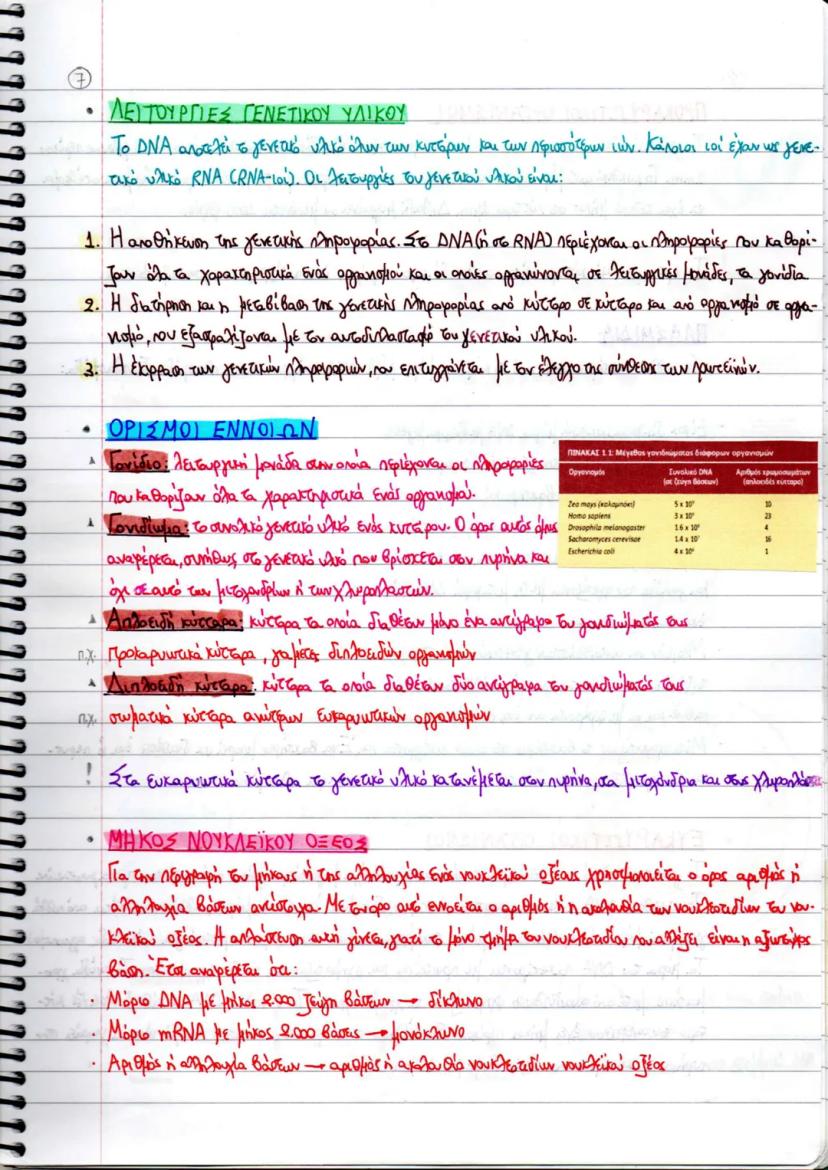 7
• ΛΕΙΤΟΥΡΓΙΕΣ ΓΕΝΕΤΙΚΟΥ ΥΛΙΚΟΥ
Το DNA αποτελεί το γενετικό υλικό όλων των κυττάρων και των περισσότερων ιών. Κάποιοι ιοί έχουν ως γενε-
τικό υλικό RNA (RNA-ιοί). Οι λειτουργίες του γενετικού υλικού είναι:
1. Η αποθήκευση της γενετικής πληροφορίας. Στο DNA (ή στο RNA) περιέχονται οι πληροφορίες που καθορί-
ζουν όλα τα χαρακτηριστικά ενός οργανισμού και οι οποίες οργανώνονται σε λειτουργικές μονάδες, τα γονίδια
2. Η διατήρηση και η μεταβίβαση της γενετικής πληροφορίας από κύτταρο σε κύτταρο και από οργανισμό σε οργα-
νισμό, που εξασφαλίζονται με τον αυτοδιπλασιασμό του γενετικού υλικού.
3. Η έκφραση των γενετικών πληροφοριών, που επιτυγχάνεται με τον έλεγχο της σύνθεσης των πρωτεϊνών.
• ΟΡΙΣΜΟΙ ΕΝΝΟΙΩΝ
Γονίδιο: λειτουργική μονάδα στην οποία περιέχονται οι πληροφορίες
που καθορίζουν όλα τα χαρακτηριστικά ενός οργανισμού.
Γονιδίωμα: το συνολικό γενετικό υλικό ενός κυττάρου. Ο όρος αυτός όμως
αναφέρεται, συνήθως στο γενετικό υλικό που βρίσκεται στον πυρήνα και
όχι σε αυτό των μιτοχονδρίων ή των χλωροπλαστών.
ΠΙΝΑΚΑΣ 1.1: Μέγεθος γονιδιώματος διάφορων οργανισμών
Οργανισμός Συνολικό DNA (σε ζεύγη βάσεων) Αριθμός χρωμοσωμάτων (απλοειδές κύτταρο)
Zea mays (καλαμπόκι) 5 x 10⁹ 10
Homo sapiens 3 x 10⁹ 23
Drosophila melanogaster 1.6 x 10⁸ 4
Sacharomyces cerevisae 1.4 x 10⁷ 16
Escherichia coli 4 x 10⁶ 1
Απλοειδή κύτταρα: κύτταρα τα οποία διαθέτουν μόνο ένα αντίγραφο του γονιδιώματός τους
π.χ. προκαρυωτικά κύτταρα, γαμέτες διπλοειδών οργανισμών
Διπλοειδή κύτταρα: κύτταρα τα οποία διαθέτουν δύο αντίγραφα του γονιδιώματός τους
π.χ. σωματικά κύτταρα ανώτερων ευκαρυωτικών οργανισμών
! Στα ευκαρυωτικά κύτταρα το γενετικό υλικό κατανέμεται στον πυρήνα, στα μιτοχόνδρια και στους χλωροπλάστες
• ΜΗΚΟΣ ΝΟΥΚΛΕΪΚΟΥ ΟΞΕΟΣ
Για την περιγραφή του μήκους ή της αλληλουχίας ενός νουκλεϊκού οξέως χρησιμοποιείται ο όρος αριθμός ή
αλληλουχία βάσεων αντίστοιχα. Με τον όρο αυτό εννοείται ο αριθμός ή η ακολουθία των νουκλεοτιδίων του νου-
κλεϊκού οξέος. Η απλούστευση αυτή γίνεται, γιατί το μόνο τμήμα του νουκλεοτιδίου που αλλάζει είναι η αζωτούχος
βάση. Έτσι αναφέρεται ότι:
· Μόριο DNA με μήκος 2.000 ζεύγη βάσεων → δίκλωνο
· Μόριο mRNA με μήκος 2.000 βάσεις → μονόκλωνο
· Αριθμός ή αλληλουχία βάσεων → αριθμός ή ακολουθία νουκλεοτιδίων νουκλεϊκού οξέος